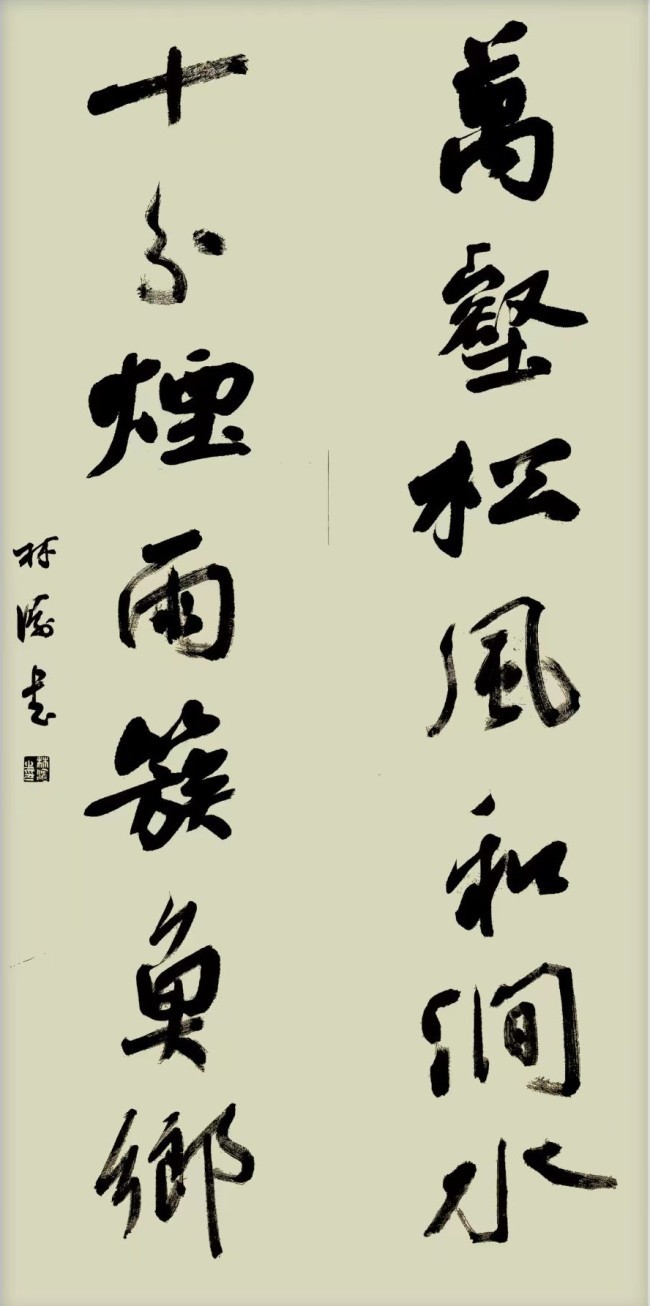 萬壑松風和澗水
十分煙雨簇魚鄉
林濤書